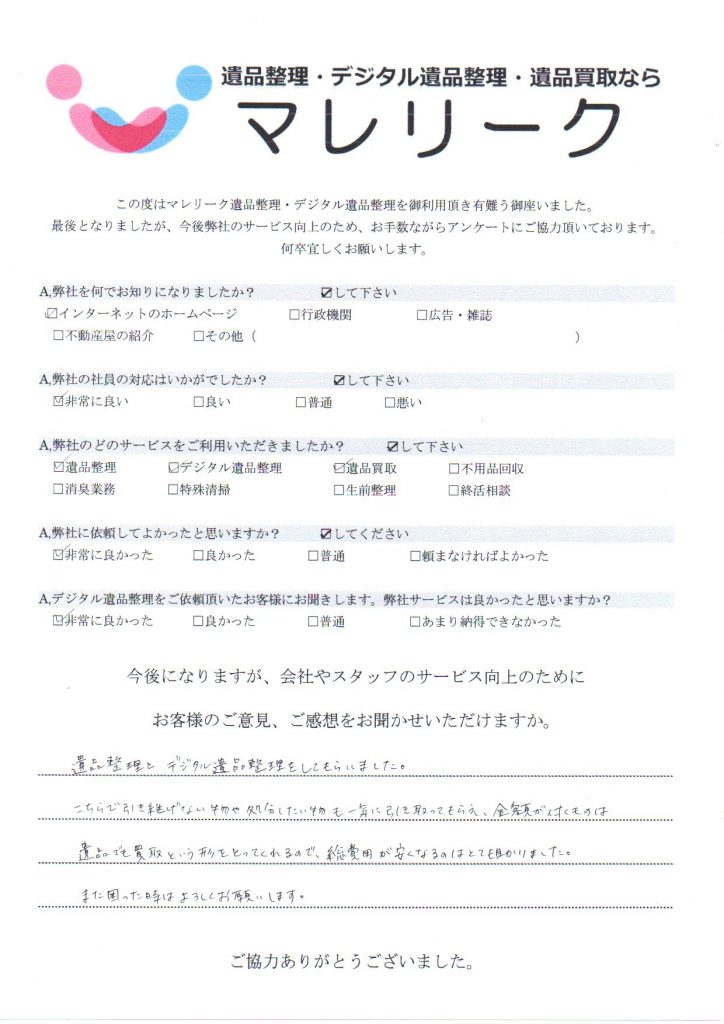 遺品整理・デジタル遺品整理・遺品買取なら
マレリーク
この度はマレリーク遺品整理・デジタル遺品整理を御利用頂き有難う御座いました。
最後となりましたが、今後弊社のサービス向上のため、お手数ながらアンケートにご協力頂いております。
何卒宜しくお願いします。
A,弊社を何でお知りになりましたか? ☑して下さい
☑インターネットのホームページ □行政機関 □広告・雑誌
□不動産屋の紹介 □その他（ ）
A,弊社の社員の対応はいかがでしたか? ☑して下さい
☑非常に良い □良い □普通 □悪い
A,弊社のどのサービスをご利用いただきましたか? ☑して下さい
☑遺品整理 ☑デジタル遺品整理 ☑遺品買取 □不用品回収
□消臭業務 □特殊清掃 □生前整理 □終活相談
A,弊社に依頼してよかったと思いますか? ☑してください
☑非常に良かった □良かった □普通 □頼まなければよかった
A,デジタル遺品整理をご依頼頂いたお客様にお聞きします。弊社サービスは良かったと思いますか?
☑非常に良かった □良かった □普通 □あまり納得できなかった
今後になりますが、会社やスタッフのサービス向上のために
お客様のご意見、ご感想をお聞かせいただけますか。
遺品整理と デジタル遺品整理をしてもらいました。
こちらで引き継げない物や処分したい物も一気に引き取ってもらえ、金額が付くものは
遺品でも買取という形をとってくれるので、総費用が安くなるのはとても助かりました。
また困った時はよろしくお願いします。
ご協力ありがとうございました。